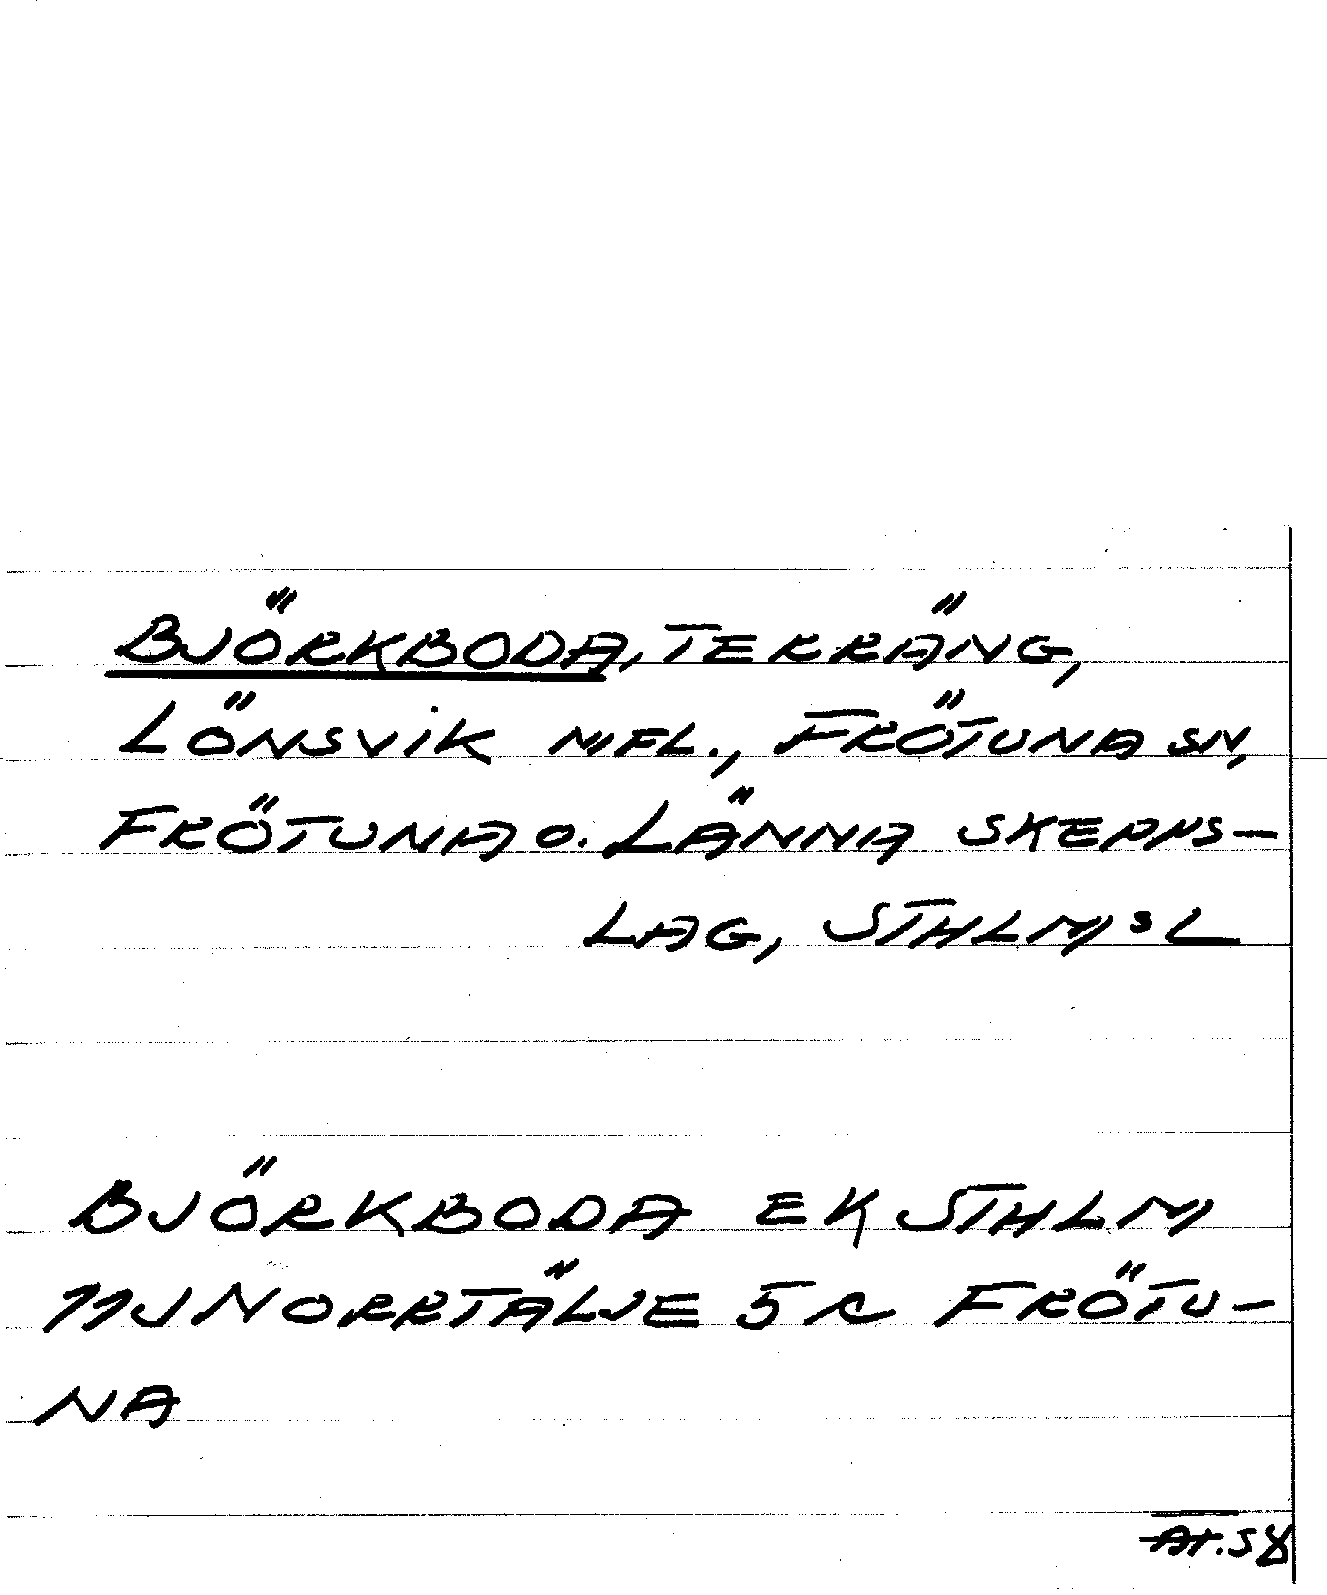 BJÖRKBODA, TERRÄNG,
LÖNSVIK MFL., FRÖTUNA SN,
FRÖTUNA O. LÄNNA SKEPPS-
LAG, STHLMS L
BJÖRKBODA EK STHLM
11J NORRTÄLJE 5 R FRÖTU-
NA
58